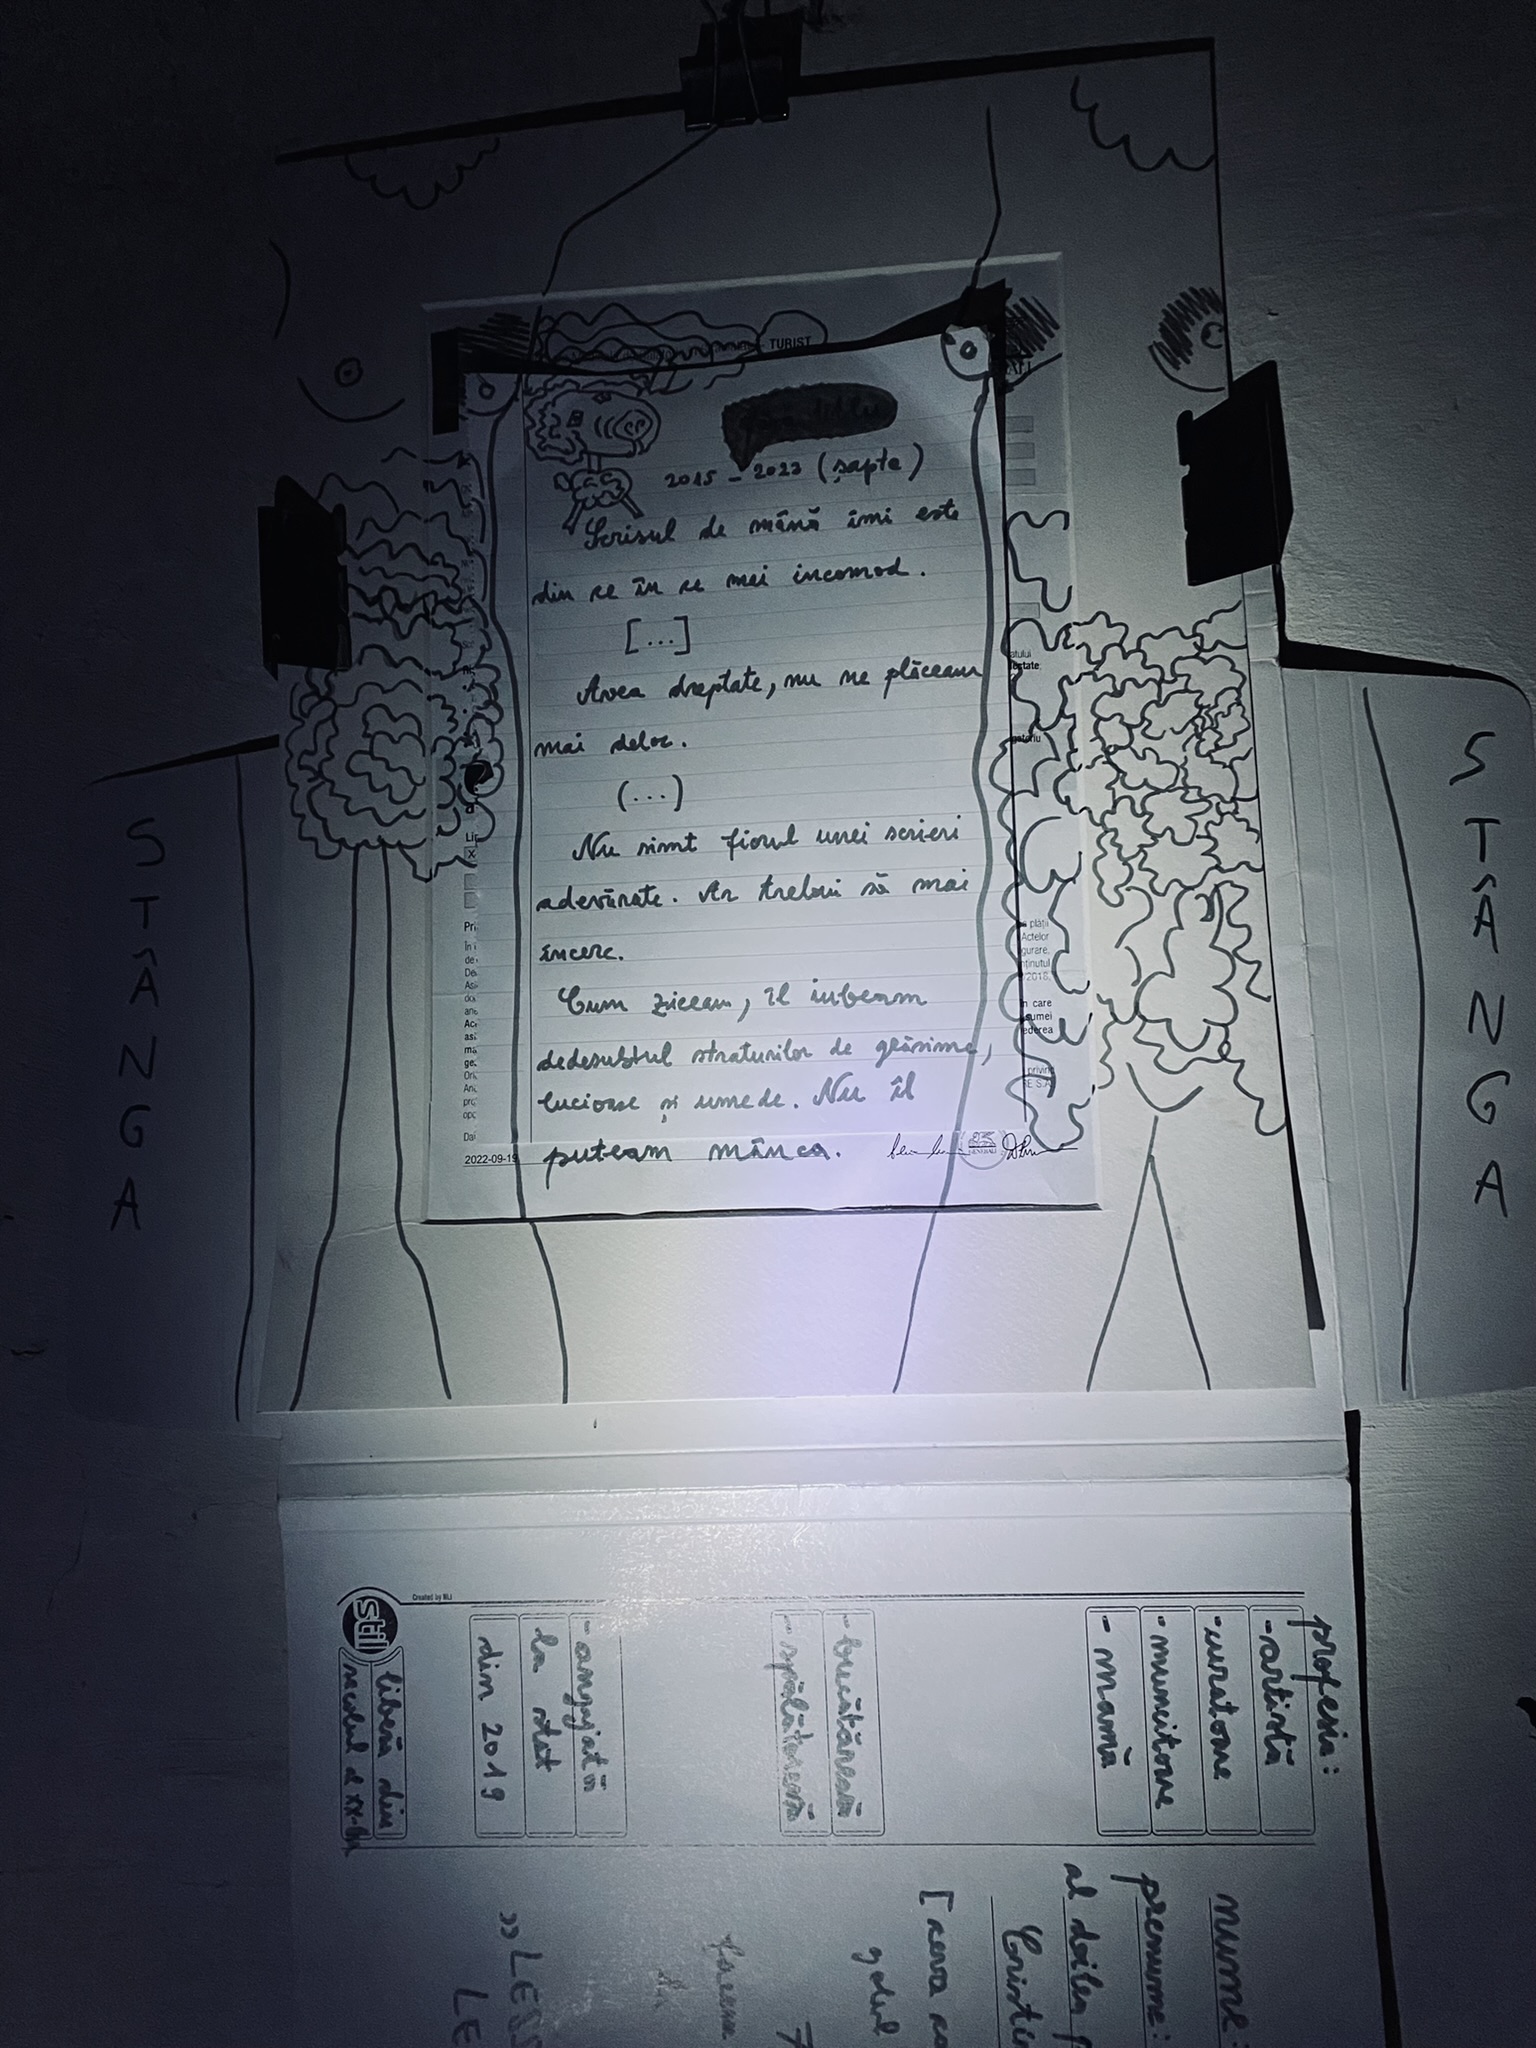 TURIST
2015 - 2023 (șapte)
Scrisul de mână îmi este
din ce în ce mai incomod.
[...]
Avea dreptate, nu ne plăceam
mai deloc.
(...)
Nu simt fiorul unei scrieri
adevărate. Ar trebui să mai
încerc.
Cum ziceam, îl iubeam
dedesubtul straturilor de grăsime,
lucioase și umede. Nu îl
puteam mânca.
2022-09-19
GENERALI
X
Pri
Dai
atului
plății
Actelor
gurare,
ținutul
2018,
în care
sumei
ederea
privind
RE S.A.
STÂNGA
STÂNGA
profesia:
- artistă
- curatoare
- muncitoare
- mamă
- bucătăreasă
- spălătoreasă
- angajată
la stat
din 2019
liberă din
secolul al XX-lea
stil
Created by MLI
nume:
prenume:
al doilea